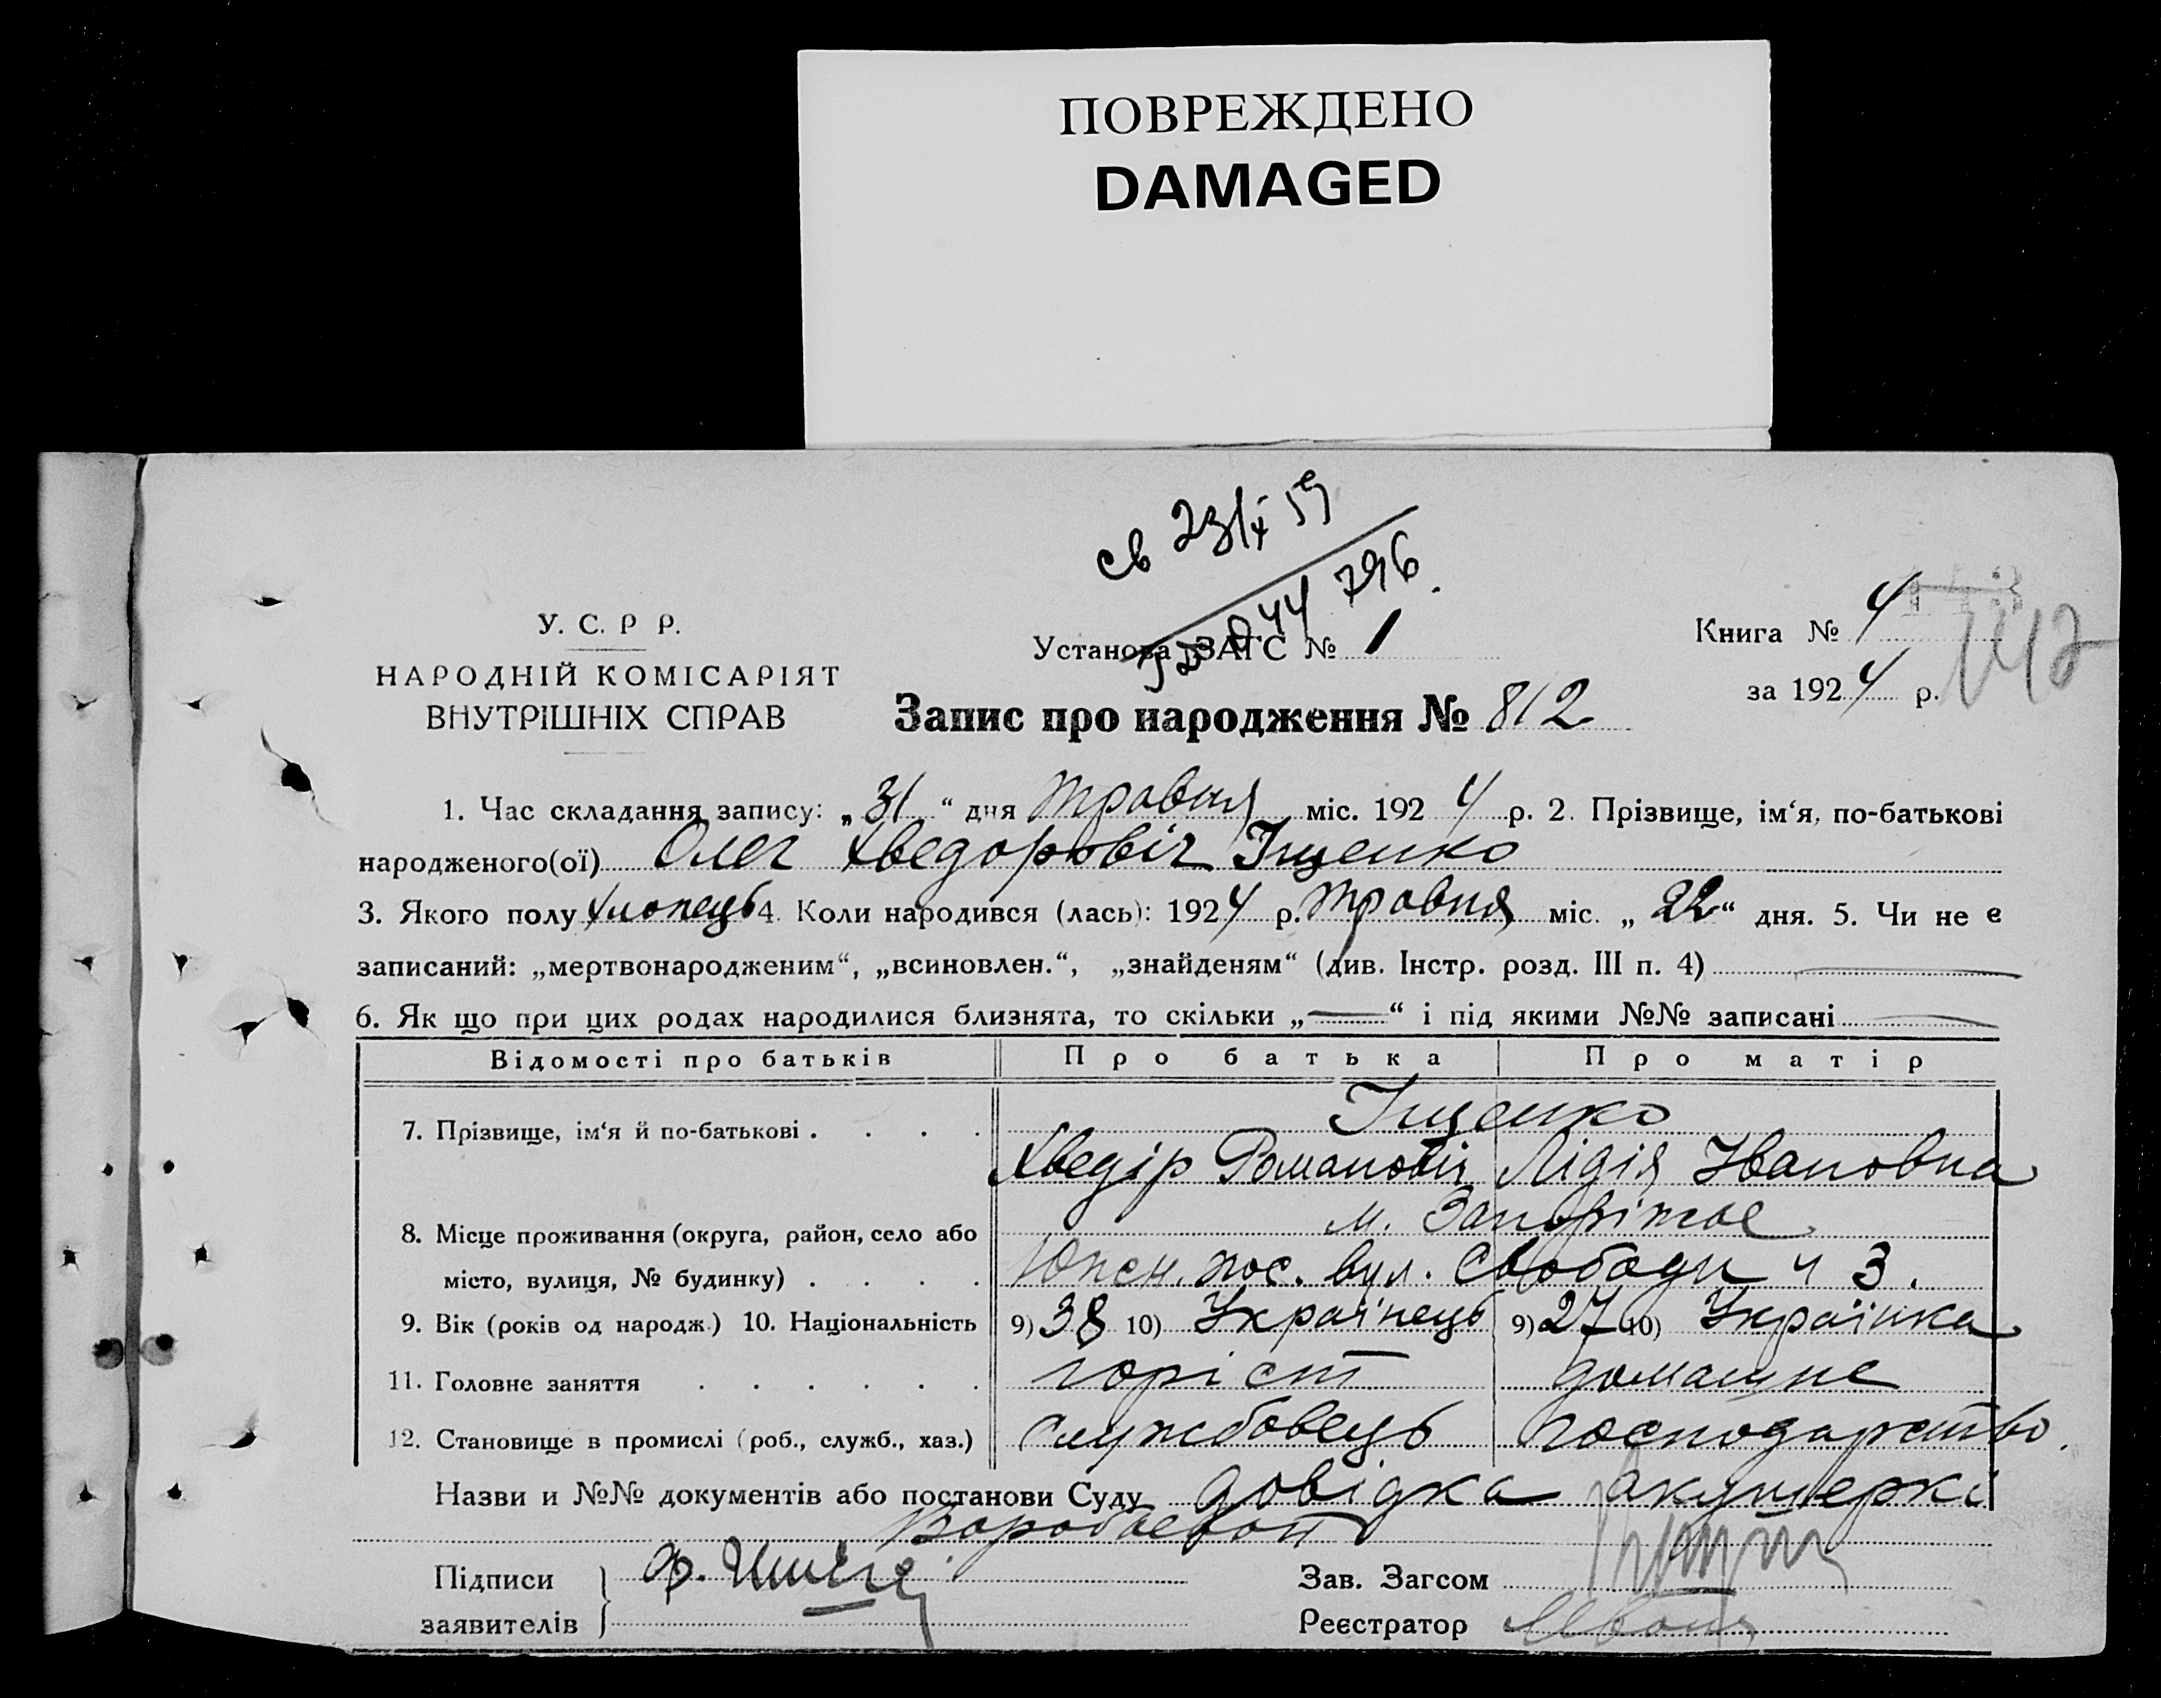 ПОВРЕЖДЕНО
DAMAGED
св 23/X 59
796
У. С. Р Р.
НАРОДНІЙ КОМІСАРІЯТ
ВНУТРІШНІХ СПРАВ
Установа ЗАГС № 1
Книга № 4
142
за 1924 р.
Запис про народження № 812
1. Час складання запису: „31“ дня травня міс. 1924 р. 2. Прізвище, ім‘я, по-батькові
народженого(ої) Олег Хведоровіч Іщенко
3. Якого полу хлопець 4. Коли народився (лась): 1924 р. травня міс. „22“ дня. 5. Чи не є
записаний: „мертвонародженим“, „всиновлен.“, „знайденям“ (див. Інстр. розд. III п. 4)
6. Як що при цих родах народилися близнята, то скільки „—“ і під якими №№ записані
Відомості про батьків Про батька Про матір
Іщенко
7. Прізвище, ім‘я й по-батькові . . . .
Хведір Романовіч Лідія Івановна
м. Запоріжже
8. Місце проживання (округа, район, село або
місто, вулиця, № будинку) . . . . пос. вул. Свободи ч 3.
9. Вік (років од народж.) 10. Національність 9) 38 10) Українець 9) 27 10) Українка
11. Головне заняття . . . . . . домашнє
12. Становище в промислі (роб., служб., хаз.) службовець господарство.
Назви и №№ документів або постанови Суду довідка акушеркі
Підписи
заявителів
Зав. Загсом
Реєстратор